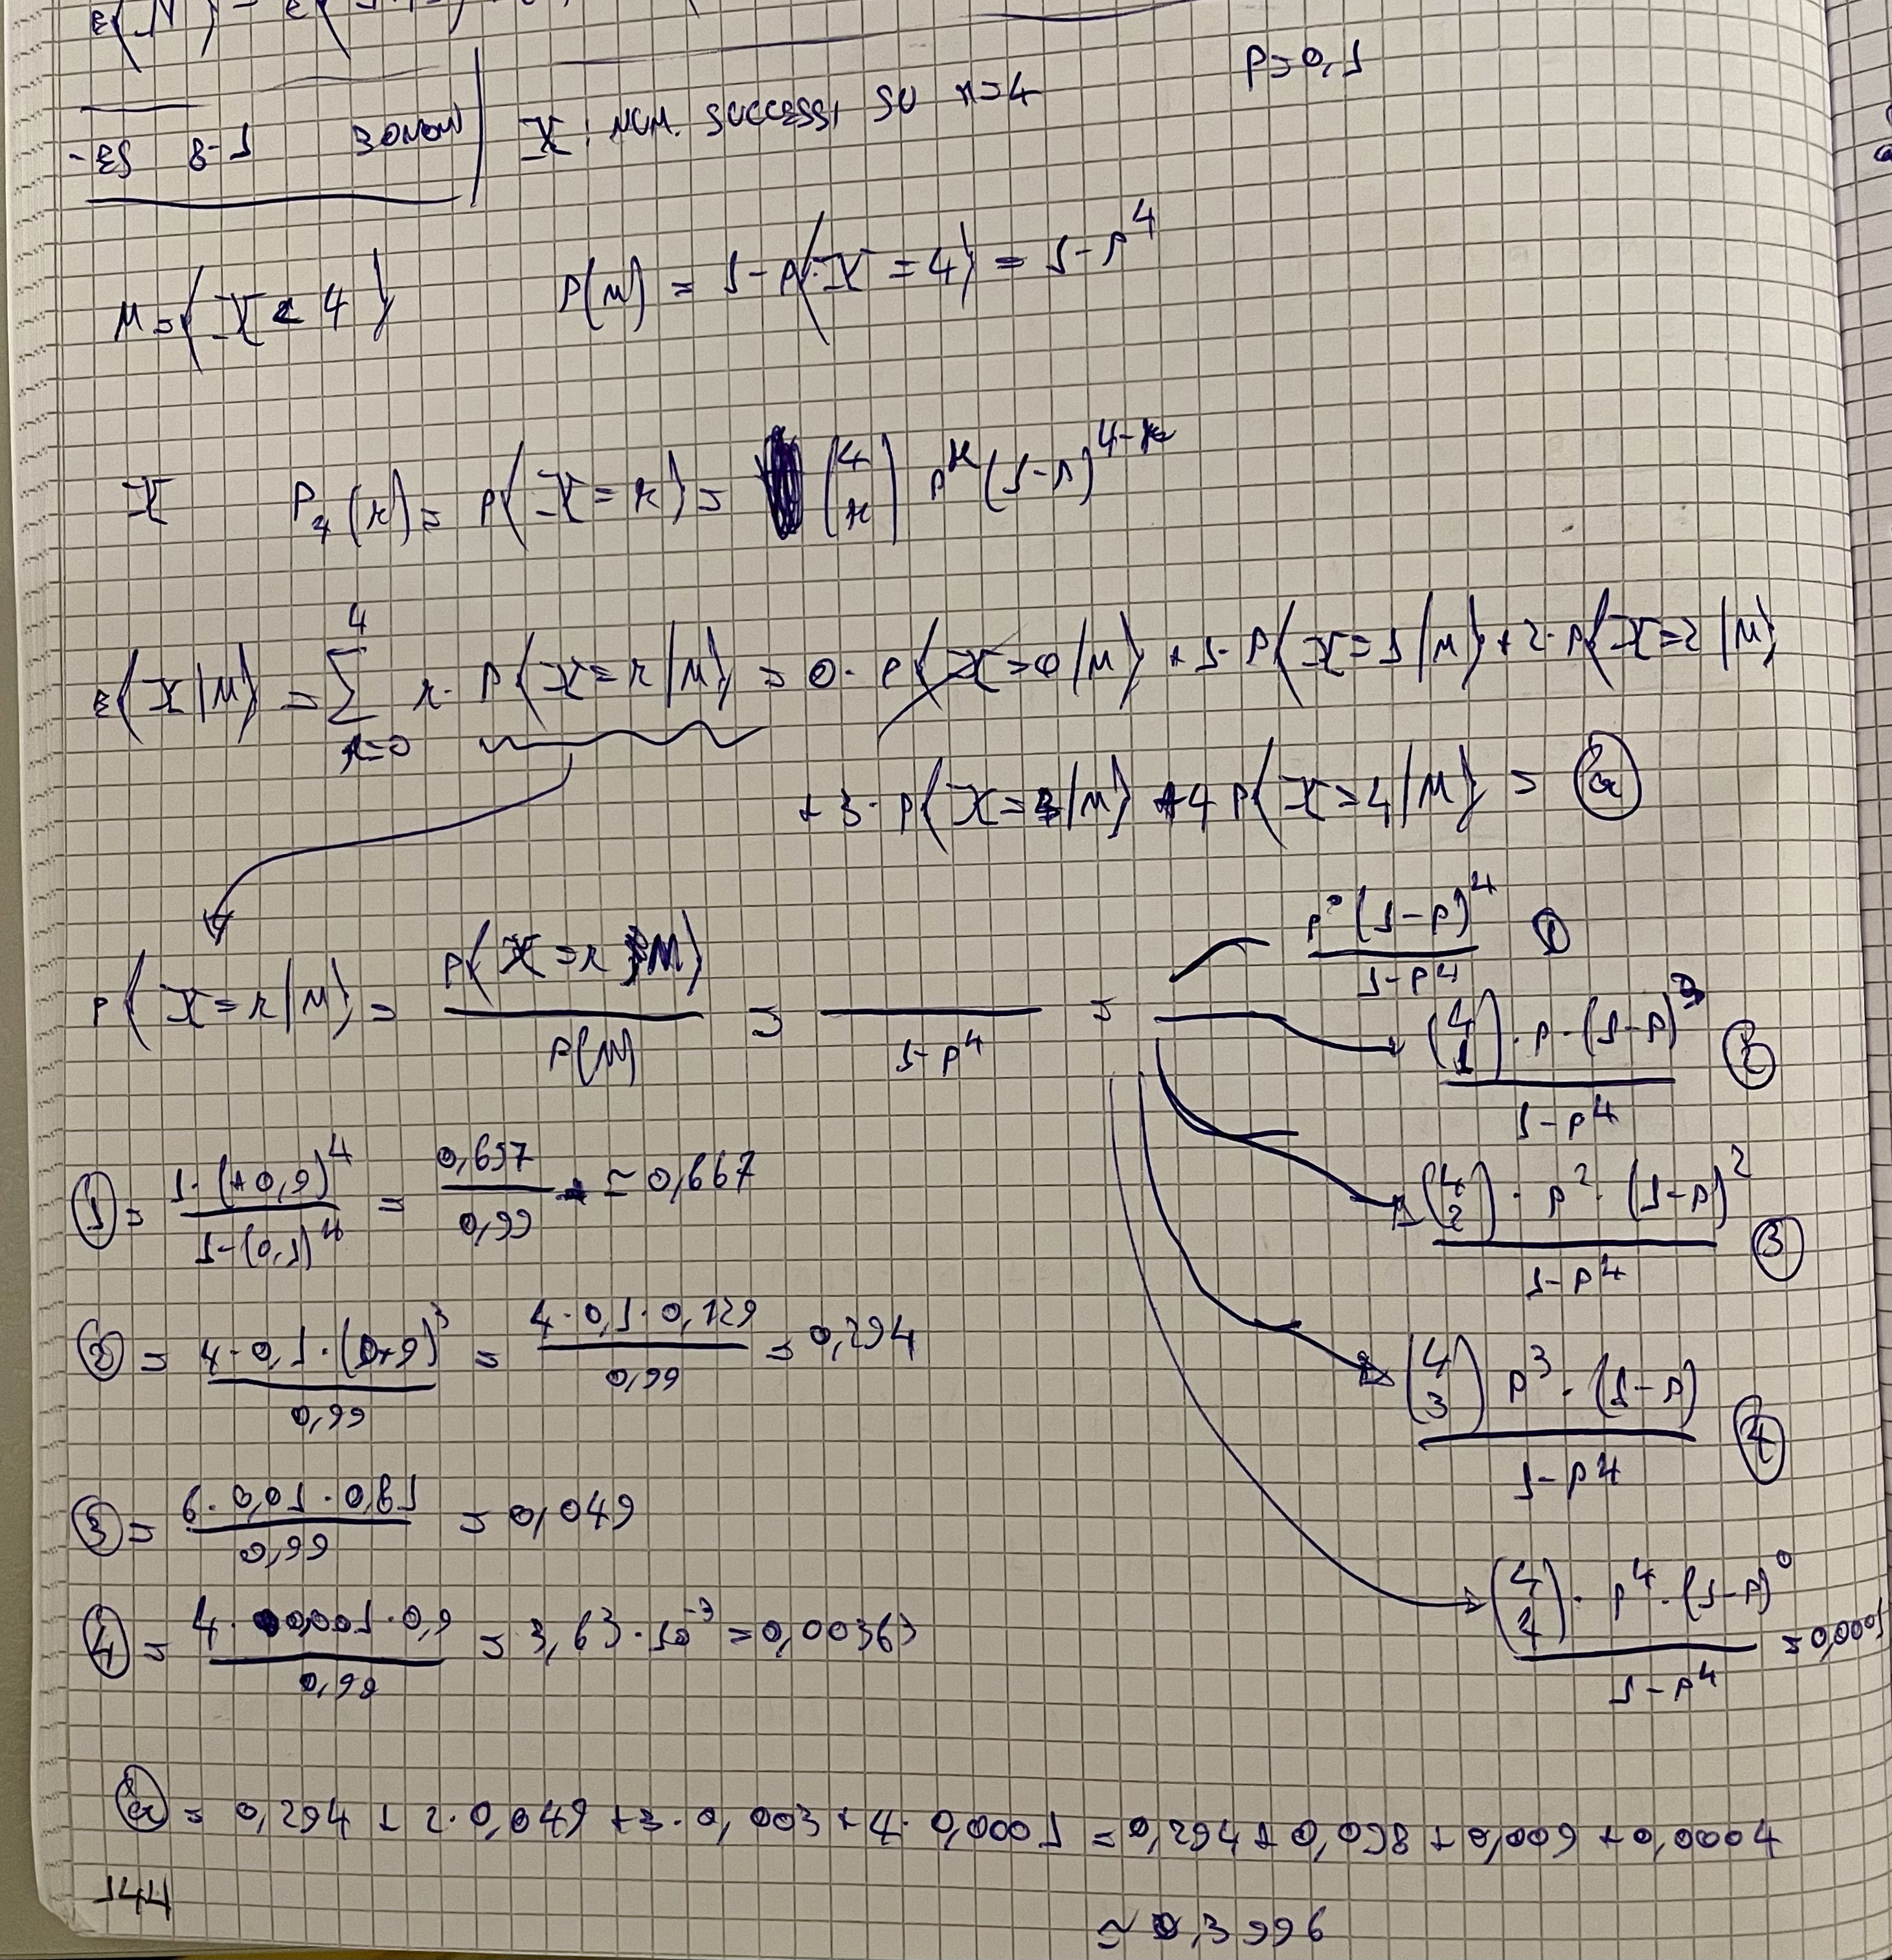 p=0,1
-ES 8-1 BONOW | X: NUM. SUCCESSI SU n=4
M={X<4} P(M) = 1-P{X=4} = 1-p^4
X P_4(k)= P{X=k}= (4 k) p^k (1-p)^{4-k}
E{X|M} = Σ_{k=0}^{4} k· P{X=k|M} = 0· P{X=0|M} + 1· P{X=1|M} + 2· P{X=2|M}
+3· P{X=3|M} +4 P{X=4|M} = (a)
P{X=k|M} = P{X=k, M} / P(M) = / 1-p^4 =
p^0 (1-p)^4 / 1-p^4 (1)
(4 1)· p· (1-p)^3 / 1-p^4 (2)
(4 2)· p^2· (1-p)^2 / 1-p^4 (3)
(4 3) p^3· (1-p) / 1-p^4 (4)
(4 4)· p^4· (1-p)^0 / 1-p^4 = 0,0001
(1) = 1·(0,9)^4 / 1-(0,1)^4 = 0,657 / 0,99 ≃ 0,667
(2) = 4·0,1·(0,9)^3 / 0,99 = 4·0,1·0,729 / 0,99 = 0,294
(3) = 6·0,01·0,81 / 0,99 = 0,049
(4) = 4·0,001·0,9 / 0,99 = 3,63·10^{-3} = 0,00363
(a) = 0,294 + 2·0,049 + 3·0,003 + 4·0,0001 = 0,294 + 0,098 + 0,009 + 0,0004
≃ 0,3996
144